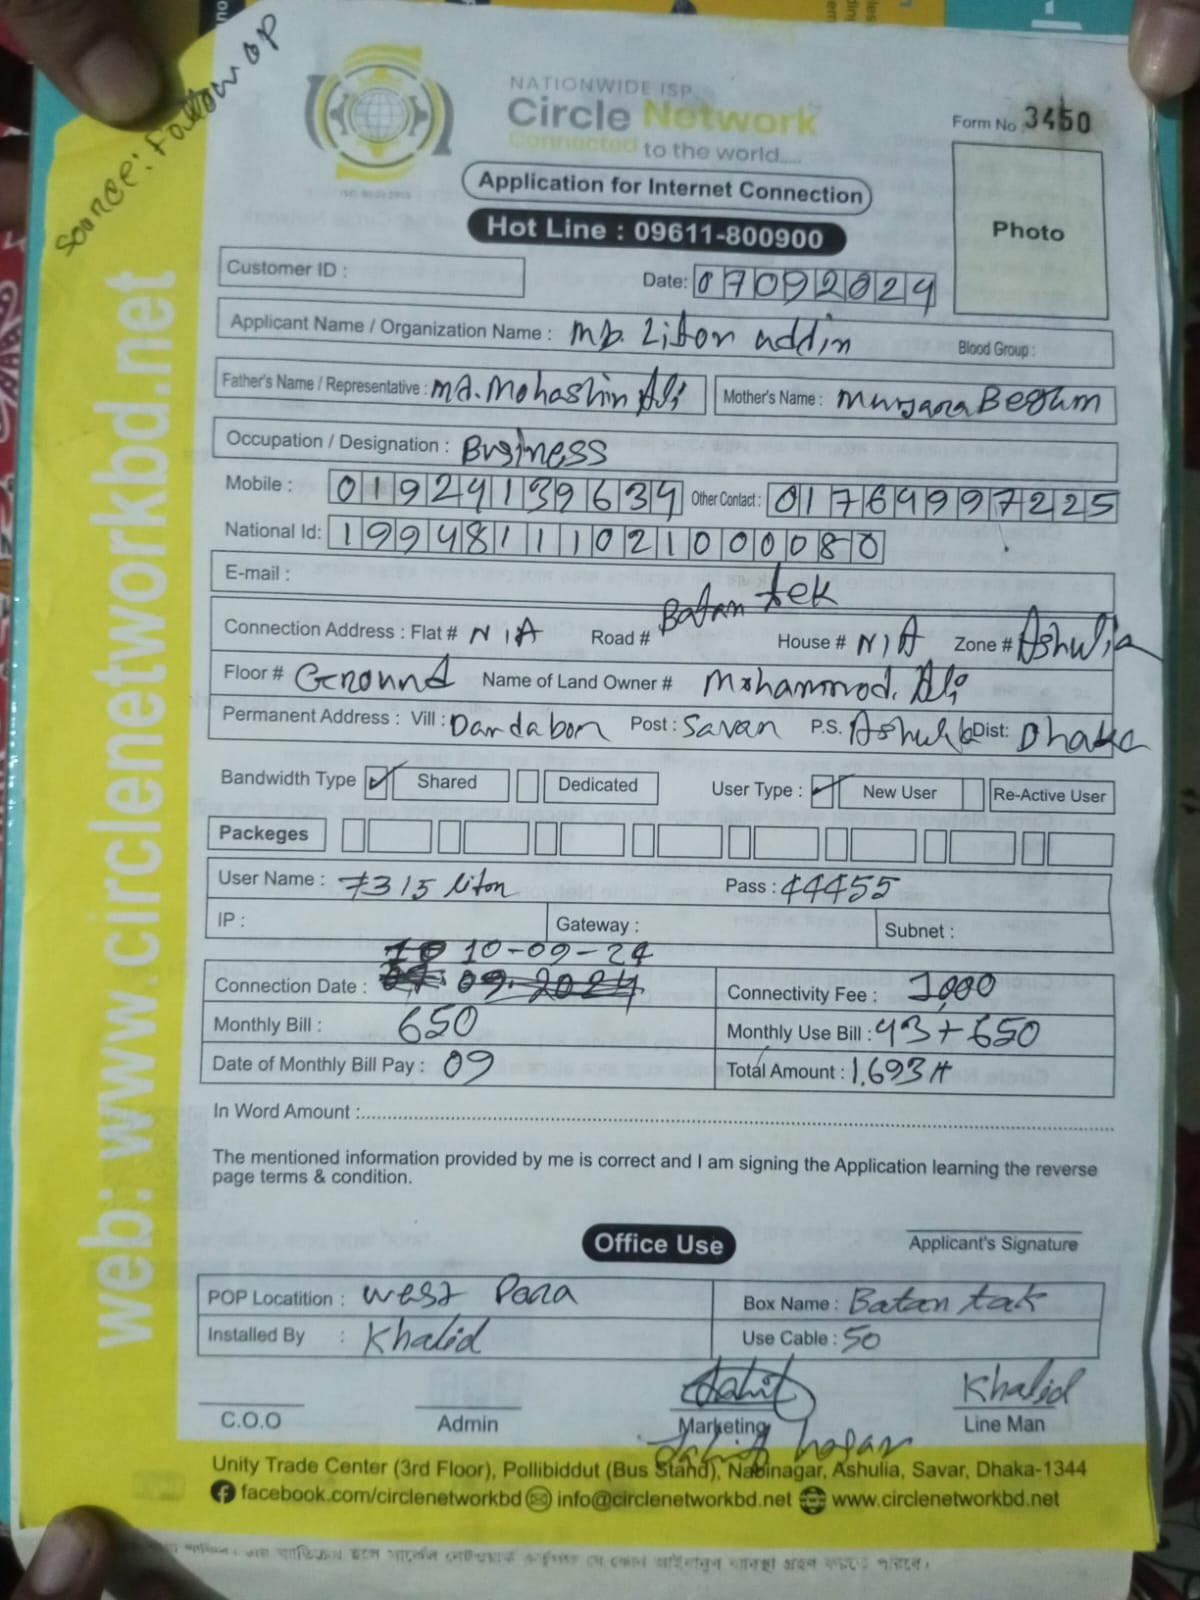 Source: Follow OP
NATIONWIDE ISP
Circle Network
Connected to the world.....
Form No 3450
Application for Internet Connection
Hot Line : 09611-800900
Photo
Customer ID :
Date: 07092024
Applicant Name / Organization Name : MD. Liton uddin Blood Group :
Father's Name / Representative : Md. Mohashin Ali Mother's Name : Murjana Begum
Occupation / Designation : Business
Mobile : 01924139634 Other Contact : 01764997225
National Id: 19948111021000080
E-mail :
Connection Address : Flat # N/A Road # Batan tek House # N/A Zone # Ashulia
Floor # Ground Name of Land Owner # Mohammod. Ali
Permanent Address : Vill : Dandabor Post : Savar P.S. Ashulia Dist: Dhaka
Bandwidth Type ✓ Shared Dedicated User Type : ✓ New User Re-Active User
Packeges
User Name : 7315 liton Pass : 44455
IP : Gateway : Subnet :
10-09-24
Connection Date : 09.2024 Connectivity Fee : 1,000
Monthly Bill : 650 Monthly Use Bill : 43 + 650
Date of Monthly Bill Pay : 09 Total Amount : 1,693
In Word Amount :
The mentioned information provided by me is correct and I am signing the Application learning the reverse
page terms & condition.
Office Use
Applicant's Signature
POP Locatition : West Para Box Name : Batan tak
Installed By : Khalid Use Cable : 50
Khalid
C.O.O Admin Marketing Line Man
Unity Trade Center (3rd Floor), Pollibiddut (Bus Stand), Nabinagar, Ashulia, Savar, Dhaka-1344
facebook.com/circlenetworkbd info@circlenetworkbd.net www.circlenetworkbd.net
web: www.circlenetworkbd.net